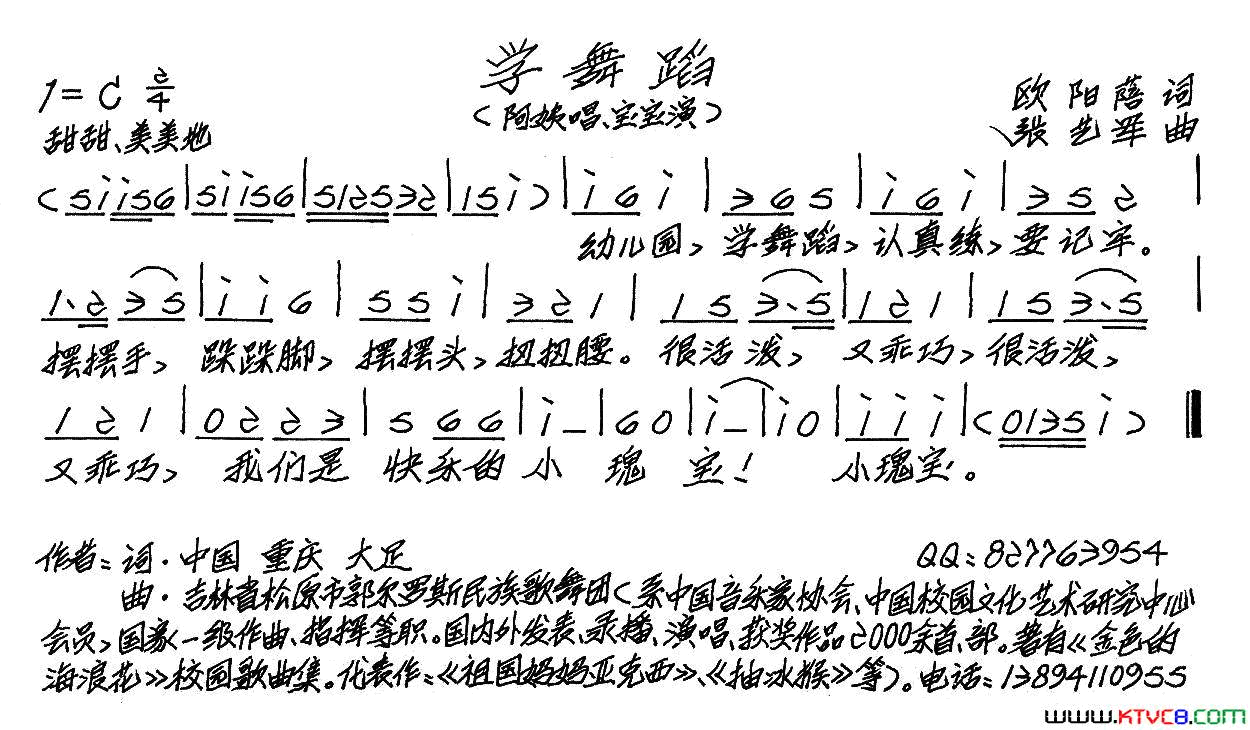 学舞蹈
1=C 2/4
(阿姨唱、宝宝演)
欧阳蓓 词
甜甜、美美地
张艺军 曲
(5i i56|5i i56|512532|15i)|i6i|365|i6i|352|
幼儿园,学舞蹈,认真练,要记牢。
1、2 35|ii6|55i|321|15 3、5|121|15 3、5|
摆摆手,跺跺脚,摆摆头,扭扭腰。很活泼,又乖巧,很活泼,
121|02 23|5 66|i–|60|i–|i0|iii|(0135i)‖
又乖巧,我们是 快乐的小瑰宝!小瑰宝。
作者:词·中国 重庆 大足 QQ:827763954
曲·吉林省松原市郭尔罗斯民族歌舞团(系中国音乐家协会、中国校园文化艺术研究中心
会员,国家一级作曲、指挥等职。国内外发表、录播、演唱、获奖作品2000余首、部。著有《金色的
海浪花》校园歌曲集。代表作:《祖国妈妈亚克西》、《抽冰猴》等)。电话:13894110955
www.KTVC8.com